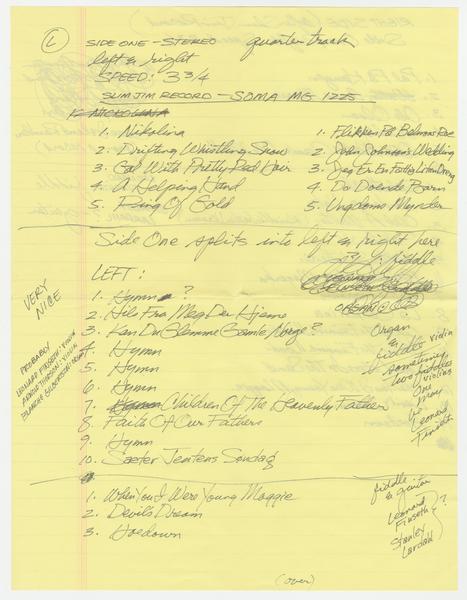 L
SIDE ONE - STEREO quarter track
left & right
SPEED: 3 3/4
SLIM JIM RECORD - SOMA MG 1225
1. Nikolina
2. Drifting Whistling Snow
3. Gal With Pretty Red Hair
4. A Helping Hand
5. Ring Of Gold
1. Flikken På Belmans Roe
2. John Johnson's Wedding
3. Jeg Er En Fattig Liten Dreng
4. Da Doende Barn
5. Ungdoms Mynder
Side One splits into left & right here
LEFT:
fiddle
ORGAN &
1. Hymn ?
2. Hils Fra Meg Der Hjeme
3. Kan Du Glemme Gamle Norge?
4. Hymn
5. Hymn
6. Hymn
7. Children Of The Heavenly Father
8. Faith Of Our Fathers
9. Hymn
10. Saeter Jentens Sondag
VERY NICE
PROBABLY
LEONARD FINSETH - VIOLIN
VIOLIN
Organ
&
fiddle violin
sometimes
two fiddles
violins
One
may
be
Leonard
Finseth
1. When You & I Were Young Maggie
2. Devils Dream
3. Hoedown
fiddle
& guitar
Leonard
Finseth
Stanley
?
(over)